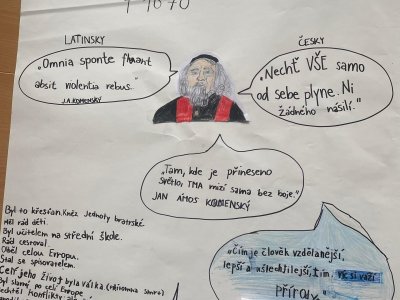 † 1670
LATINSKY
„Omnia sponte fluant
absit violentia rebus."
J.A.KOMENSKÝ
ČESKY
„Nechť VŠE samo
od sebe plyne. Ni
žádného násilí."
„Tam, kde je přineseno
světlo, TMA mizí sama bez boje."
JAN AMOS KOMENSKÝ
Byl to křesťan. Kněz Jednoty bratrské.
Měl rád děti.
Byl učitelem na střední škole.
Rád cestoval.
Oběl celou Evropu.
Stal se spisovatelem.
Celý jeho život byla válka
Byl slavný po celé Evropě
konflikty
„Čím je člověk vzdělanější,
lepší a ušlechtilejší, tím více si váží
PŘÍRODY."